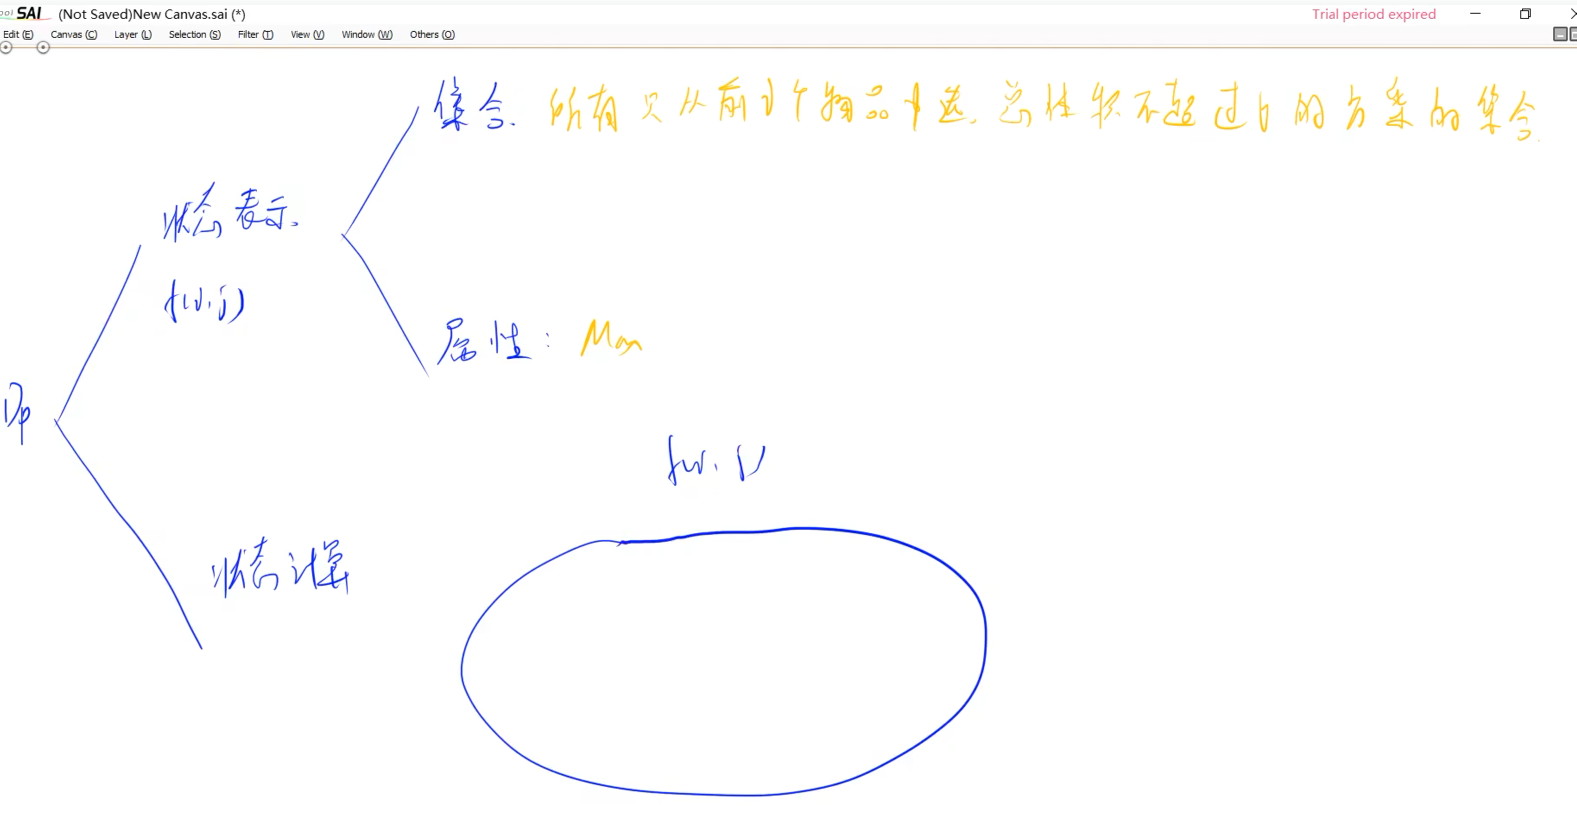 SAI (Not Saved)New Canvas.sai (*) Trial period expired
Edit (E) Canvas (C) Layer (L) Selection (S) Filter (T) View (V) Window (W) Others (O)
集合. 所有只从前i个物品中选, 总体积不超过j的方案的集合.
状态表示.
f(i,j)
属性: Max
Dp
f(i,j)
状态计算